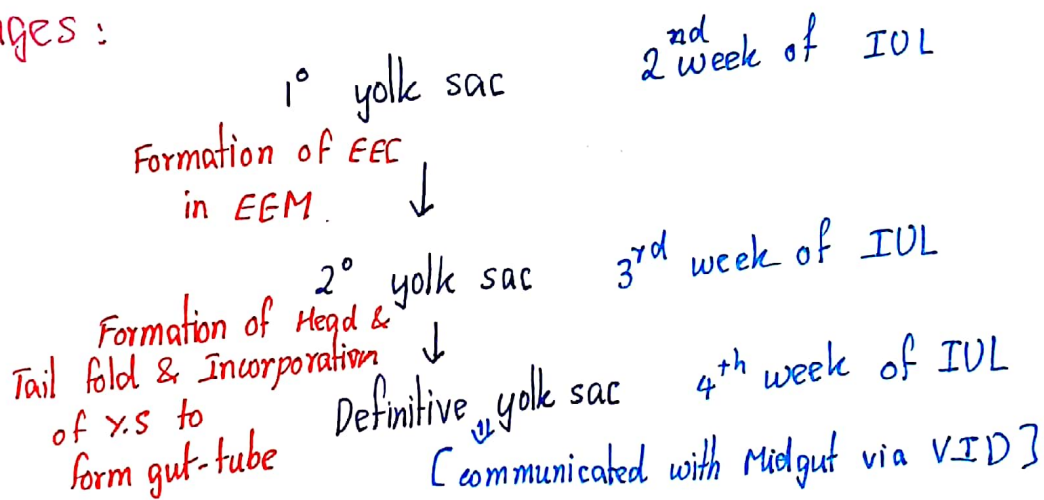 ages :
1° yolk sac 2nd week of IUL
Formation of EEC
in EEM.
↓
2° yolk sac 3rd week of IUL
Formation of Head &
Tail fold & Incorporation ↓
of Y.S to
form gut-tube
Definitive yolk sac 4th week of IUL
[communicated with Midgut via VID]